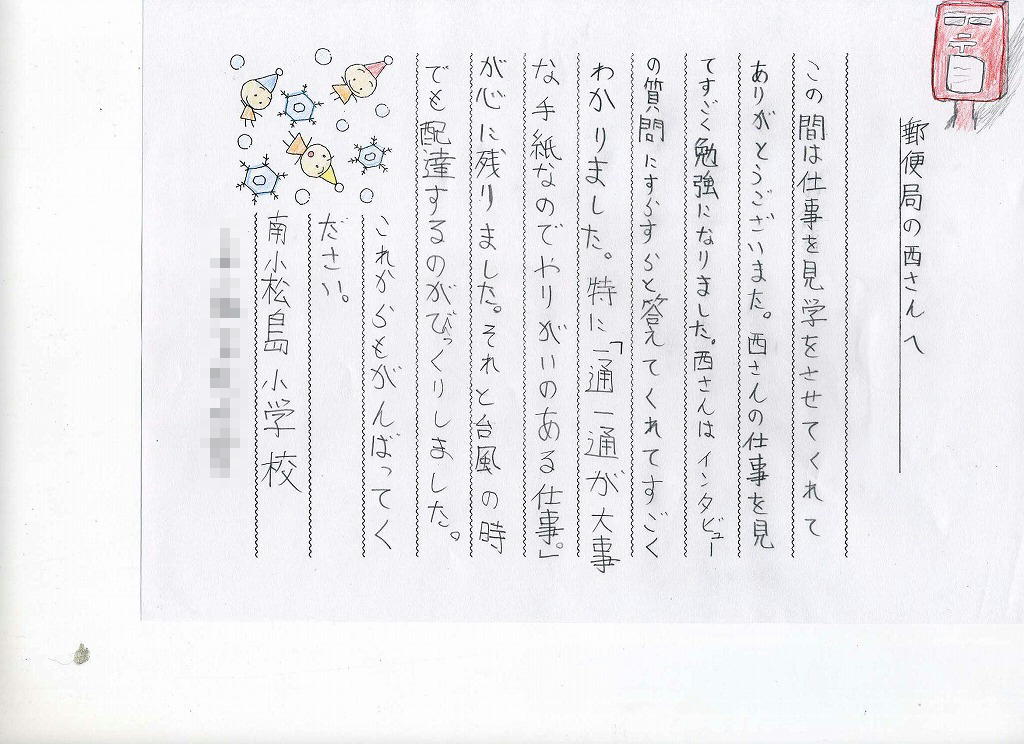 郵便局の西さんへ
この間は仕事を見学をさせてくれて
ありがとうございまた。西さんの仕事を見
てすごく勉強になりました。西さんはインタビュー
の質問にすらすらと答えてくれてすごく
わかりました。特に「一通一通が大事
な手紙なのでやりがいのある仕事。」
が心に残りました。それと台風の時
でも配達するのがびっくりしました。
これからもがんばってく
ださい。
南小松島小学校